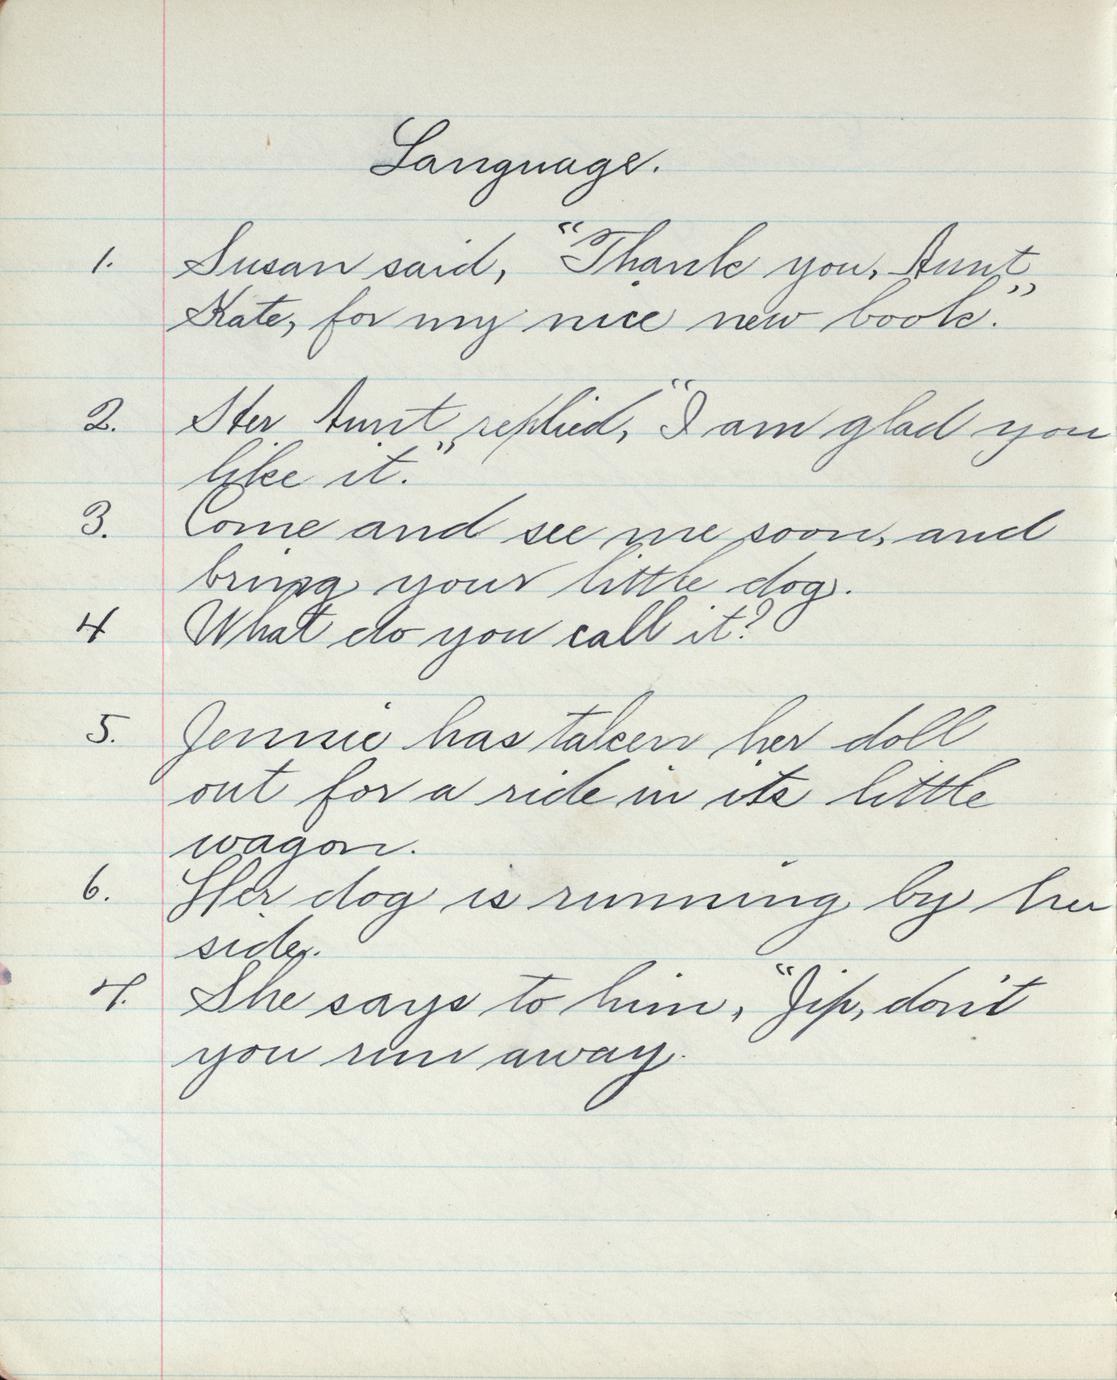 Language.
1. Susan said, "Thank you, Aunt
Kate, for my nice new book."
2. Her Aunt replied, "I am glad you
like it."
3. Come and see me soon, and
bring your little dog.
4 What do you call it?
5. Jennie has taken her doll
out for a ride in its little
wagon.
6. Her dog is running by her
side.
7. She says to him, "Jip, don't
you run away.